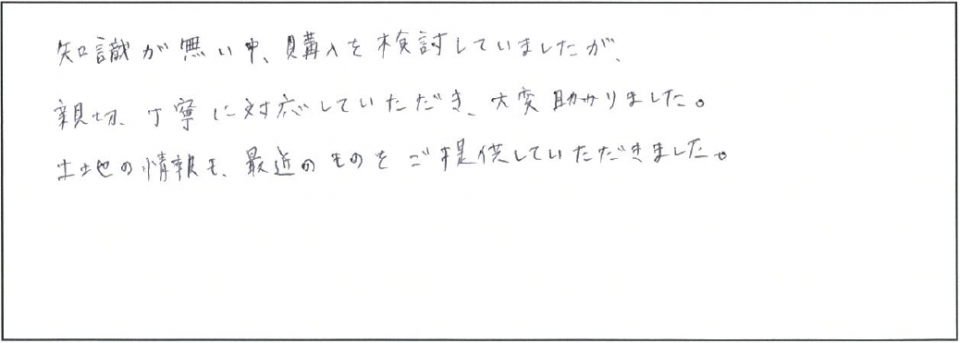 知識が無い中、購入を検討していましたが、
親切、丁寧に対応していただき、大変助かりました。
土地の情報も、最近のものをご提供していただきました。